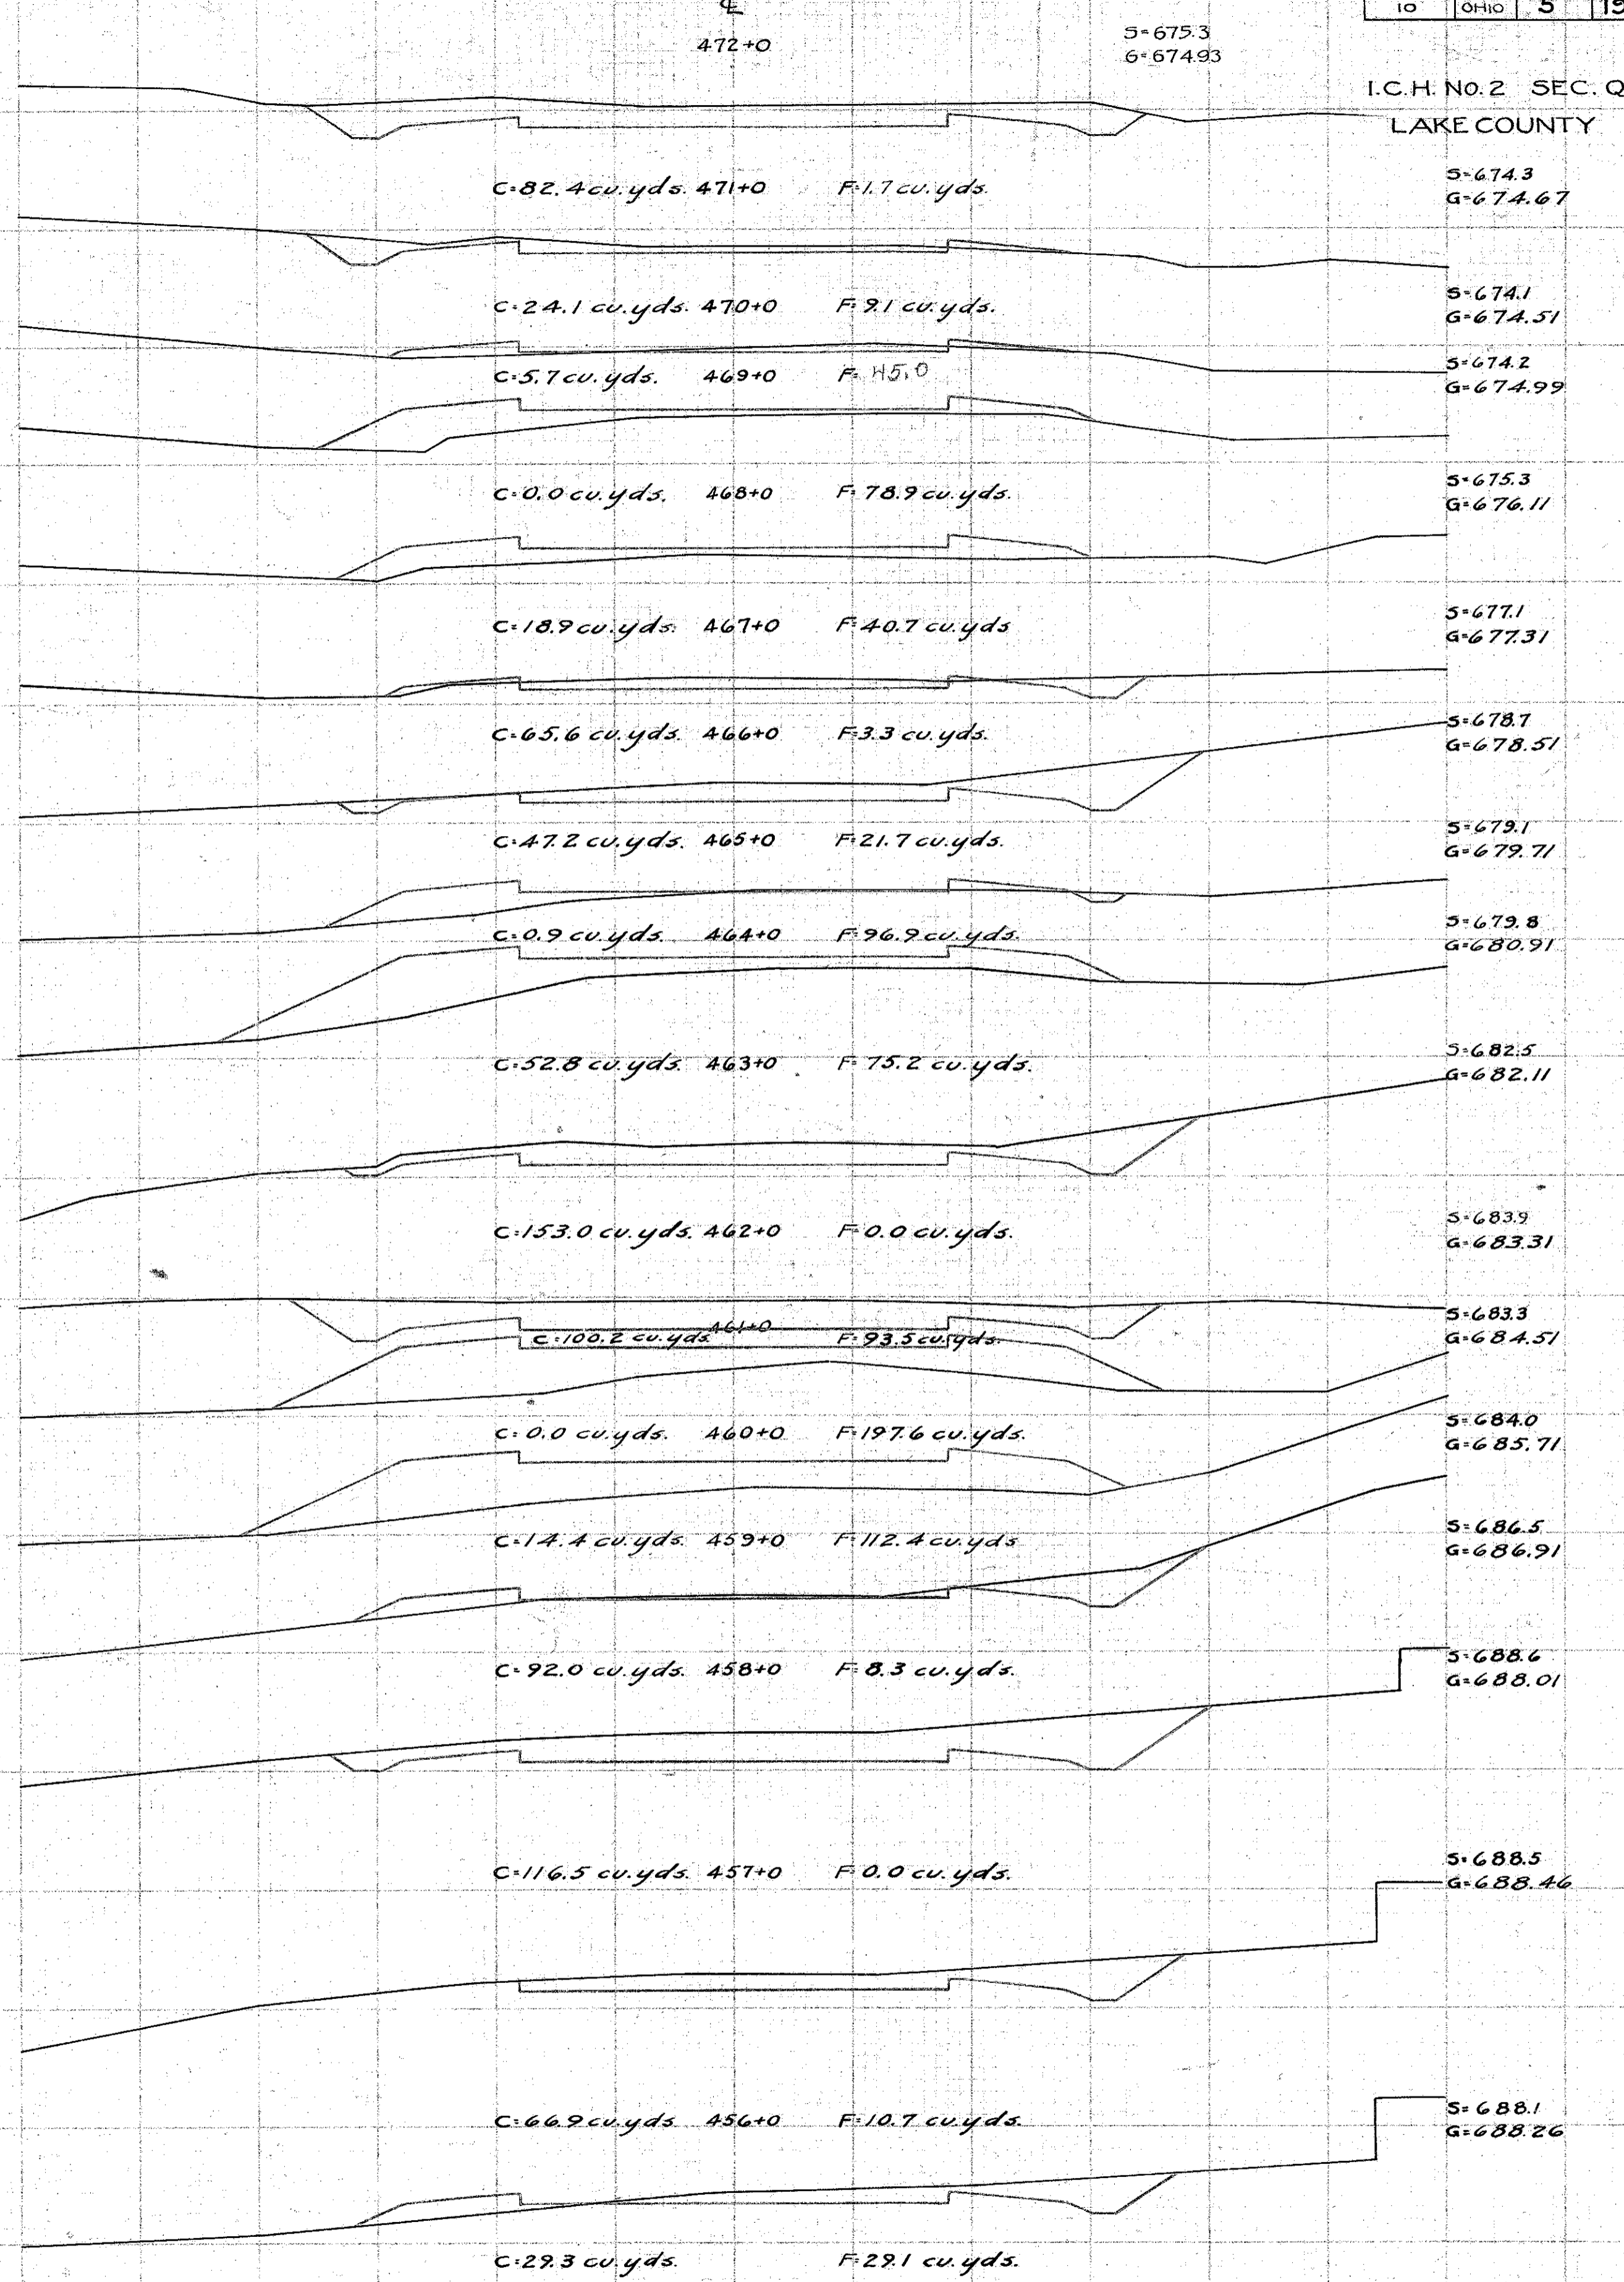 10 OHIO 5
℄
472+0
S=675.3
G=674.93
I.C.H. NO. 2 SEC. Q
LAKE COUNTY
C=82.4 cu. yds. 471+0 F=1.7 cu. yds.
S=674.3
G=674.67
C=24.1 cu. yds. 470+0 F=9.1 cu. yds.
S=674.1
G=674.51
C=5.7 cu. yds. 469+0 F=45.0
S=674.2
G=674.99
C=0.0 cu. yds. 468+0 F=78.9 cu. yds.
S=675.3
G=676.11
C=18.9 cu. yds. 467+0 F=40.7 cu. yds
S=677.1
G=677.31
C=65.6 cu. yds. 466+0 F=3.3 cu. yds.
S=678.7
G=678.51
C=47.2 cu. yds. 465+0 F=21.7 cu. yds.
S=679.1
G=679.71
C=0.9 cu. yds. 464+0 F=96.9 cu. yds.
S=679.8
G=680.91
C=52.8 cu. yds. 463+0 F=75.2 cu. yds.
S=682.5
G=682.11
C=153.0 cu. yds. 462+0 F=0.0 cu. yds.
S=683.9
G=683.31
461+0
C=100.2 cu. yds. F=93.5 cu. yds.
S=683.3
G=684.51
C=0.0 cu. yds. 460+0 F=197.6 cu. yds.
S=684.0
G=685.71
C=14.4 cu. yds. 459+0 F=112.4 cu. yds
S=686.5
G=686.91
C=92.0 cu. yds. 458+0 F=8.3 cu. yds.
S=688.6
G=688.01
C=116.5 cu. yds. 457+0 F=0.0 cu. yds.
S=688.5
G=688.46
C=66.9 cu. yds 456+0 F=10.7 cu. yds.
S=688.1
G=688.26
C=29.3 cu. yds. F=29.1 cu. yds.